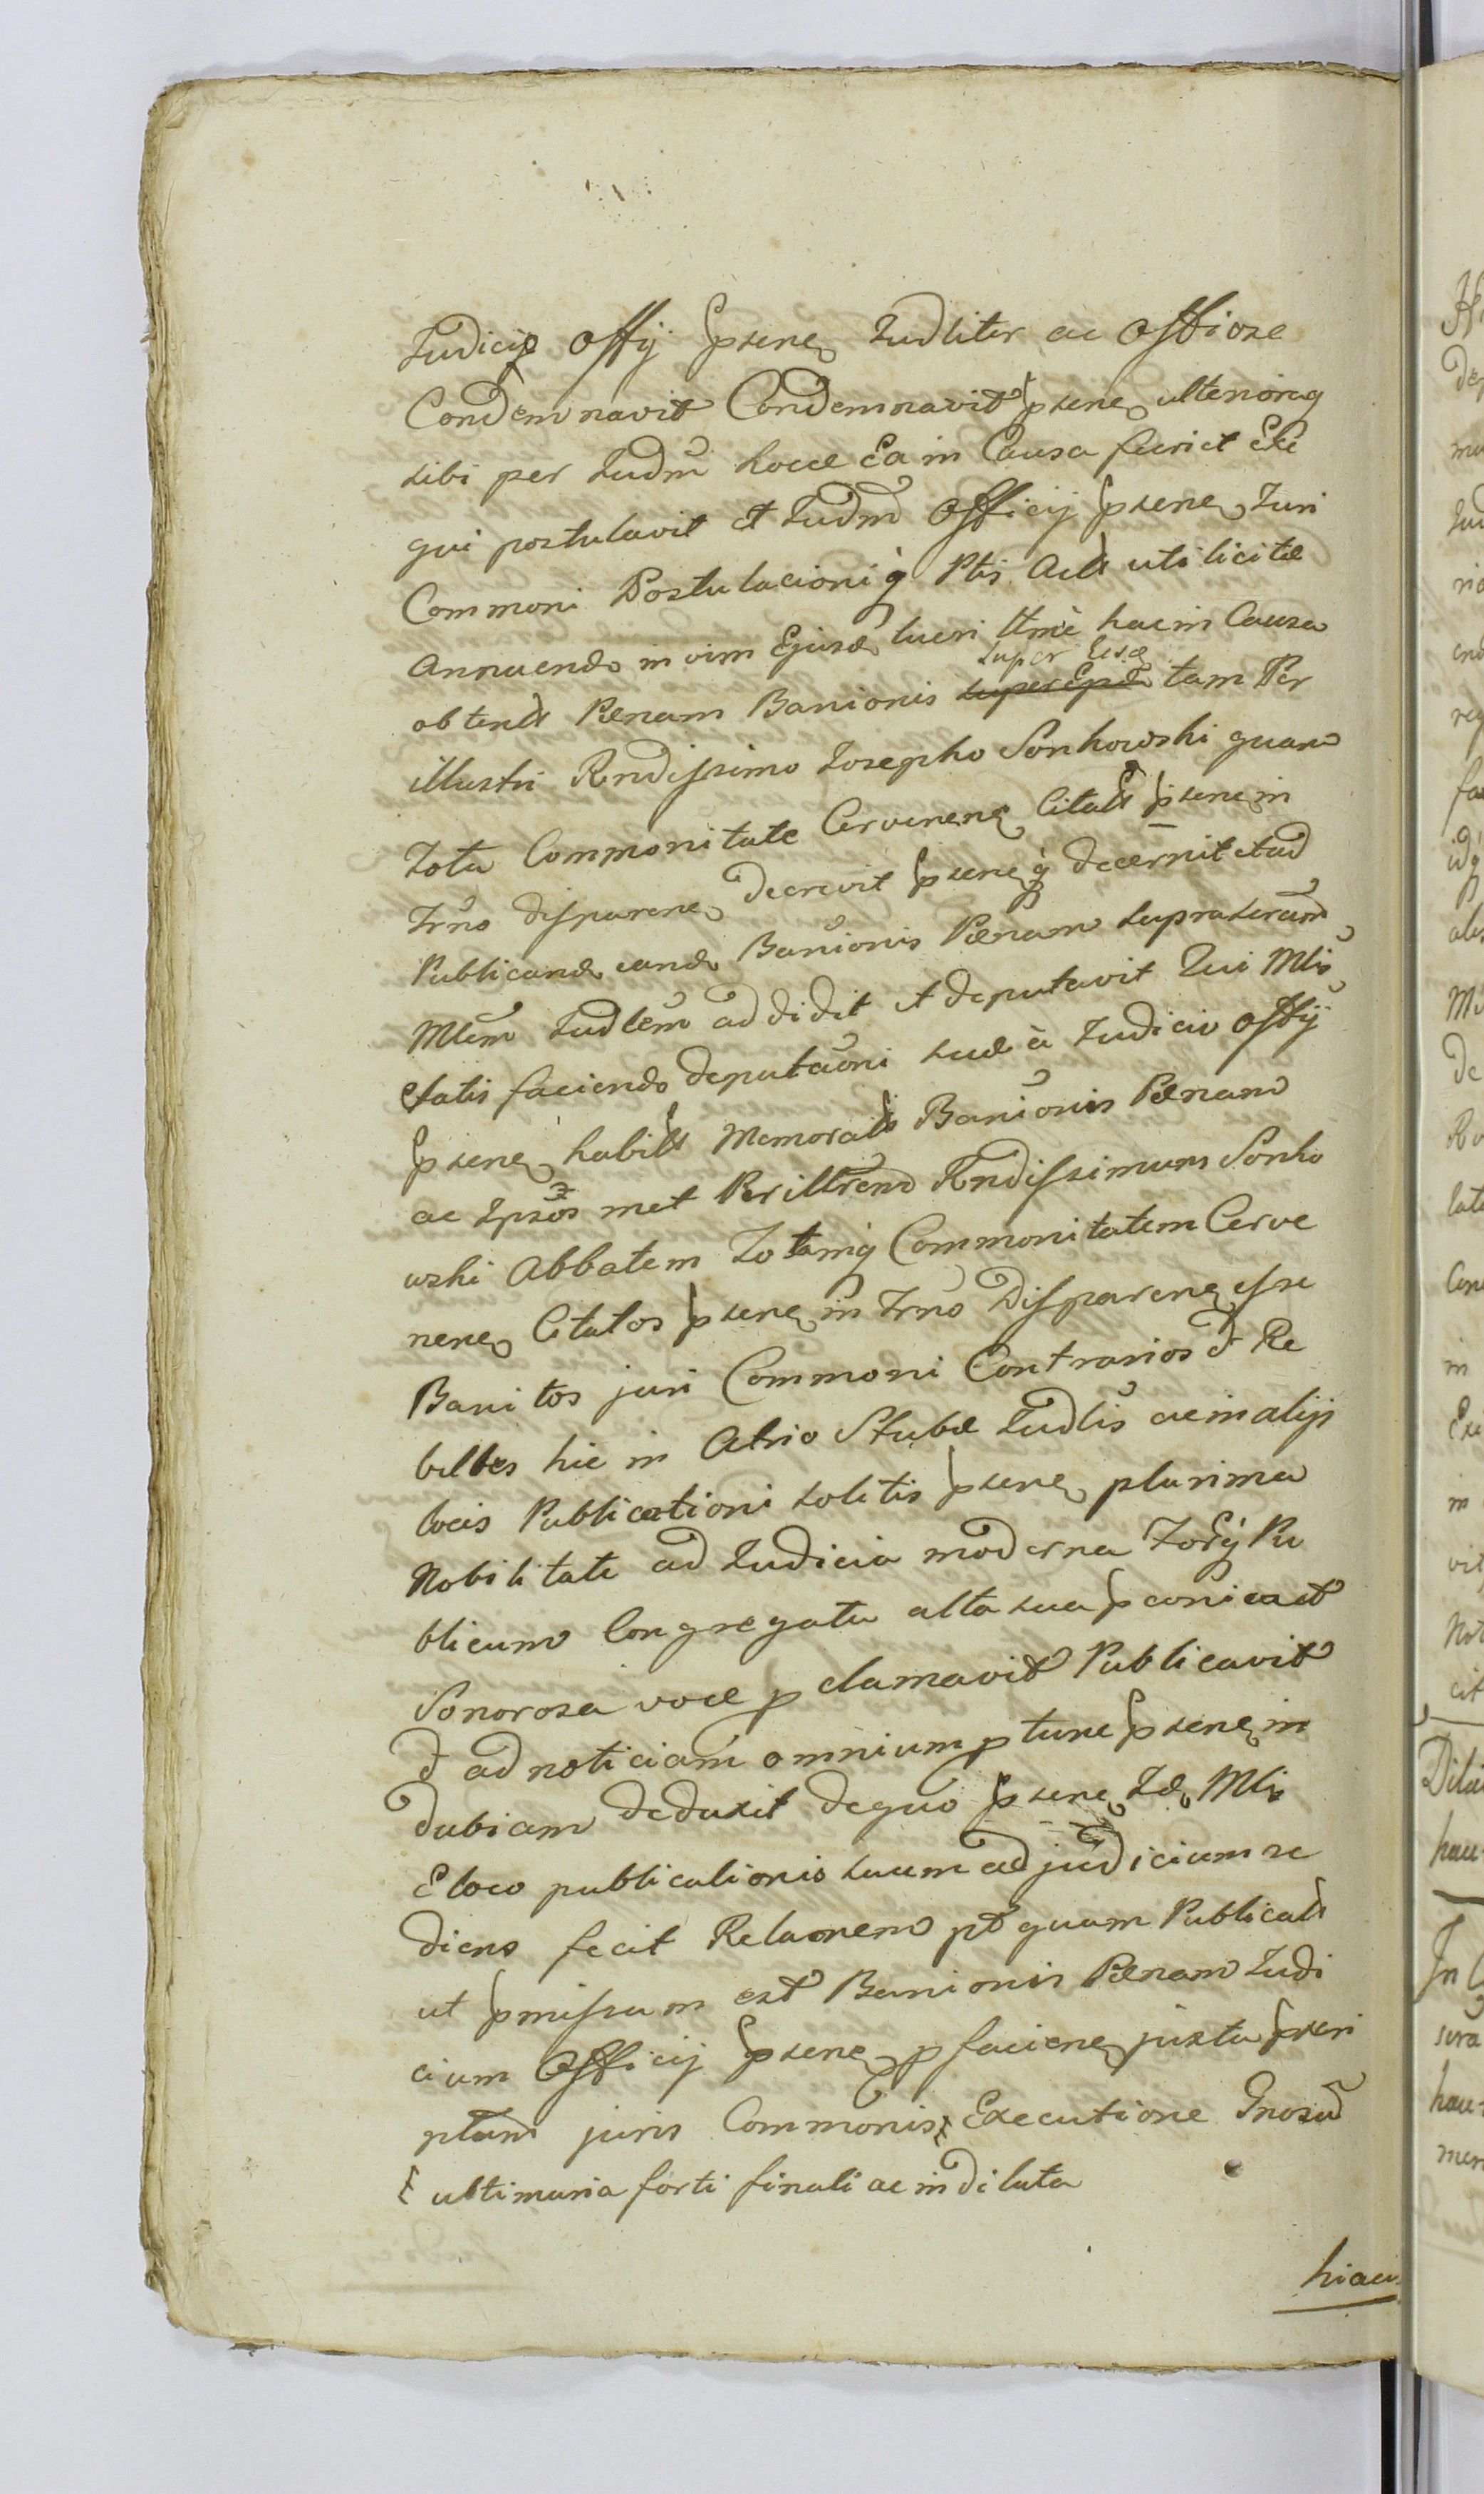 Judicij Offij psene Judliter ac Offiose
Condemnavit Condemnavit psene ulteriorq
sibi per Judm hocce Ea in Causa fieri et Exe
qui postulavit et Judm Officij psene Juri
Commoni Postulacioni q Ptis Acts uti licitæ
Annuendo in vim Ejusd lucri ttmè hac in Causa
super Eisd
obtents Pænam Banionis super Epd tam Per
illustri Rndissimo Josepho Sonkowski quam
Tota Commonitate Cervenene Citats psene in
Trno disparene decrevit pseneq decernit et ad
Publicand eand Banionis Pænam supraseram
Mlem Judlem addidit et deputavit Qui Mlis
satis faciendo deputaoni suæ à Judicio Offij
psene habits Memorats Banionis Pænam
ac Ipsos met Perillrem Rndissimum Sonko
wski Abbatem Totamq Commonitatem Cerve
nene Citatos psene in Trno Disparene esse
Banitos juri Commoni Contrarios et Re
belles hic in Atrio Stubæ Judlis ac in alijs
locis Publicationi solitis psene plurima
Nobilitate ad Judicia moderna Forij Pu
blicum Congregata alta sua pconica et
Sonorosa voce pclamavit Publicavit
et ad noticiam omnium ptunc psene in
dubiam deduxit dequo psene Id Mlis
E loco publicationis suum ad judicium re
diens fecit Relaonem pt quam Publicats
ut pmissum est Banionis Pænam Judi
cium Officij psene pfaciene juxta pscri
ptum juris Commonis Executione Gnosum
ultimaria forti finali ac indilata
hiacu